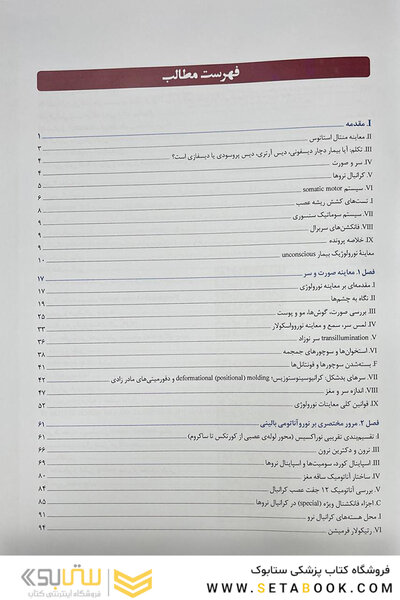 فهرست مطالب
I. مقدمه ۱
II. معاینه منتال استاتوس ۳
III. تکلم: آیا بیمار دچار دیسفونی، دیس آرتری، دیس پروسودی یا دیسفازی است؟ ۴
IV. سر و صورت ۴
V. کرانیال نروها ۵
VI. سیستم somatic motor ۶
I. تست‌های کشش ریشه عصب ۸
VII. سیستم سوماتیک سنسوری ۹
VIII. فانکشن‌های سربرال ۹
IX. خلاصه پرونده ۹
معاینهٔ نورولوژیک بیمار unconscious ۱۰
فصل ۱. معاینه صورت و سر ۱۷
I. مقدمه‌ای بر معاینه نورولوژی ۱۷
II. نگاه به چشم‌ها ۱۹
III. بررسی صورت، گوش‌ها، مو و پوست ۲۵
IV. لمس سر، سمع و معاینه نوروواسکولار ۳۳
V. transillumination سر نوزاد ۳۶
VI. استخوان‌ها و سوچورهای جمجمه ۳۸
F. بسته‌شدن سوچورها و فونتانل‌ها ۴۱
VII. سرهای بدشکل: کرانیوسینوستوزیس؛ deformational (positional) molding و دفورمیتی‌های مادر زادی ۴۲
VIII. اندازه سر و مغز ۴۷
IX. قوانین کلی معاینات نورولوژی ۵۲
فصل ۲. مرور مختصری بر نوروآناتومی بالینی ۶۱
I. تقسیم‌بندی تقریبی نوراکسیس (محور لوله‌ی عصبی از کورتکس تا ساکروم) ۶۱
II. نرون و دکترین نرون ۶۶
III. اسپاینال کورد، سومیت‌ها و اسپاینال نروها ۶۹
IV. ساختار آناتومیک ساقه مغز
V. بررسی آناتومیک ۱۲ جفت عصب کرانیال ۸۴
C. اجزاء فانکشنال ویژه (special) در کرانیال نروها ۸۵
I. محل هسته‌های کرانیال نرو ۹۱
VI. رتیکولار فرمیشن ۹۴
ستابوک
فروشگاه اینترنتی کتاب
فروشگاه کتاب پزشکی ستابوک
WWW.SETABOOK.COM